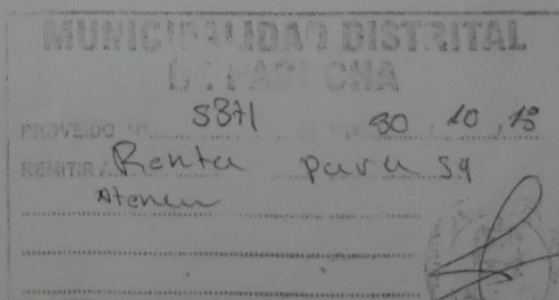 MUNICIPALIDAD DISTRITAL
PROVEIDO Nº 5371 30, 10, 18
REMITIR A Renta para su
Atencion